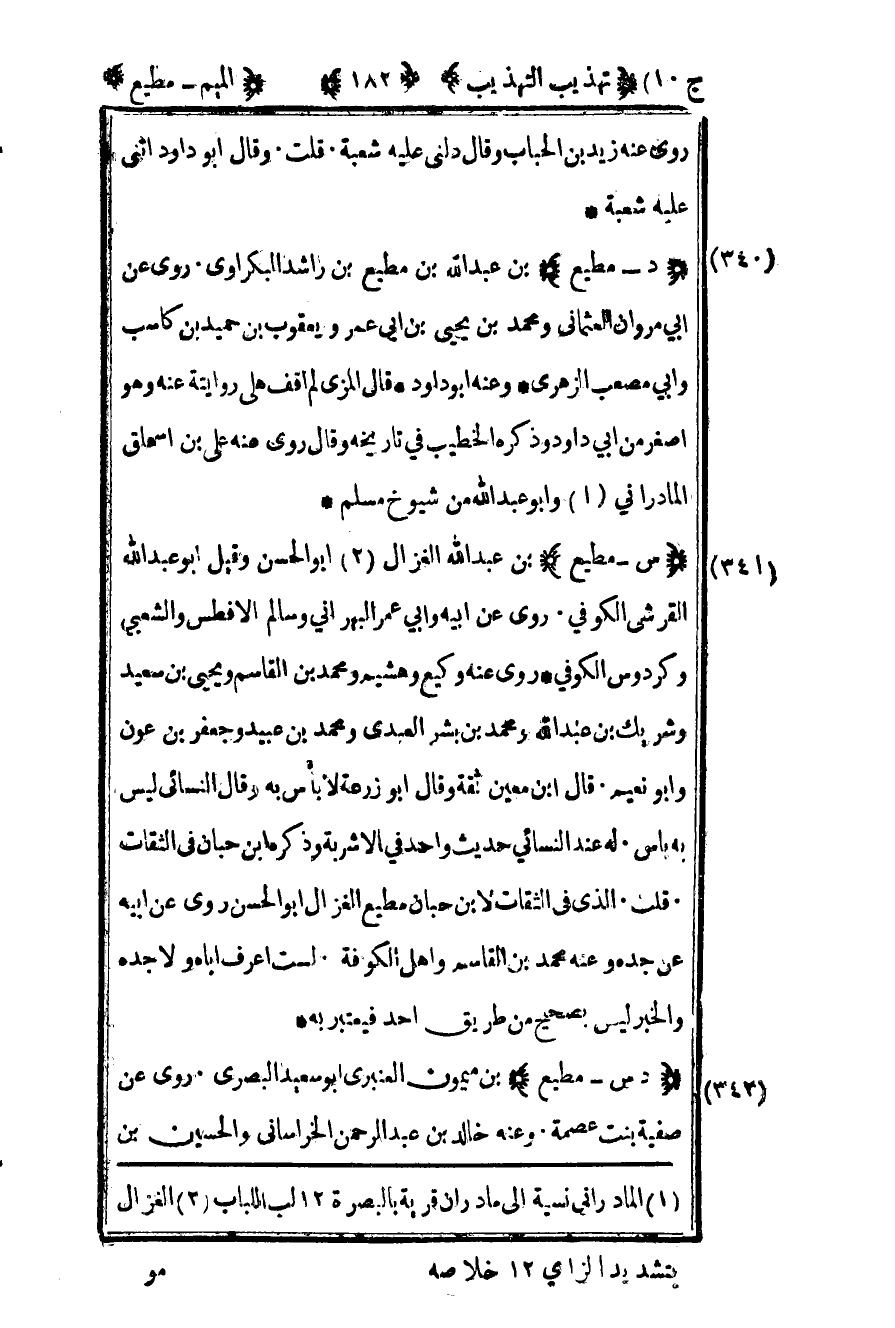 ج ١٠) ﴿ تهذيب التهذيب ﴾ ﴿ ١٨٢ ﴾ ﴿ الميم ـ مطيع ﴾
روى عنه زيد بن الحباب وقال دلنى عليه شعبة · قلت · وقال ابو داود اثنى
عليه شعبة *
(٣٤٠) ﴿ د ـ مطيع ﴾ بن عبدالله بن مطيع بن راشد البكراوى · روى عن
ابي مروان العثمانى و محمد بن يحيى بن ابى عمر و يعقوب بن حميد بن كاسب
وابي مصعب الزهرى * وعنه ابو داود * قال المزى لم اقف على روايتة عنه وهو
اصغر من ابي داود وذكره الخطيب في تاريخه وقال روى عنه على بن اسحاق
المادرا في (١) وابو عبدالله من شيوخ مسلم *
(٣٤١) ﴿ س ـ مطيع ﴾ بن عبدالله الغزال (٢) ابو الحسن وقيل ابو عبدالله
القرشى الكوفي · روى عن ابيه وابي عمر البهرانى وسالم الافطس والشعبي
وكردوس الكوفي * روى عنه وكيع وهشيم ومحمد بن القاسم ويحيى بن سعيد
وشريك بن عبدالله ومحمد بن بشر العبدى ومحمد بن عبيد وجعفر بن عون
وابو نعيم · قال ابن معين ثقة وقال ابو زرعة لا بأس به وقال النسائى ليس
به باس · له عند النسائي حديث واحد في الاشربة وذكره ابن حبان فى الثقات
· قلت · الذى فى الثقات لابن حبان مطيع الغزال ابو الحسن روى عن ابيه
عن جده و عنه محمد بن القاسم واهل الكوفة · لست اعرف اباه ولا جده
والخبر ليس بصحيح من طريق احد فيعتبر به *
(٣٤٣) ﴿ د س ـ مطيع ﴾ بن ميمون العنبرى ابو سعيد البصرى · روى عن
صفية بنت عصمة · وعنه خالد بن عبد الرحمن الخراسانى والحسين بن
(١) المادرانى نسبة الى مادران قرية بالبصرة ١٢ لب اللباب (٢) الغزال
بتشديد الزاي ١٢ خلاصه
مو